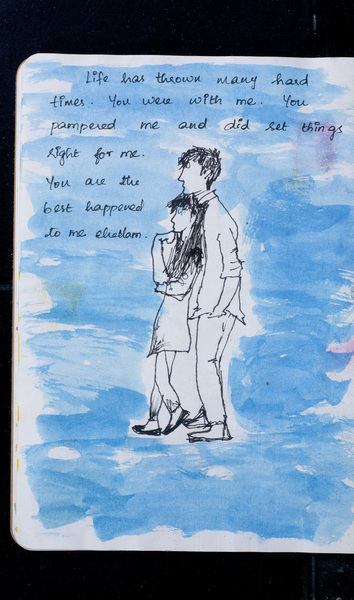 Life has thrown many hard
times. You were with me. You
pampered me and did set things
right for me.
You are the
best happened
to me chetlam.